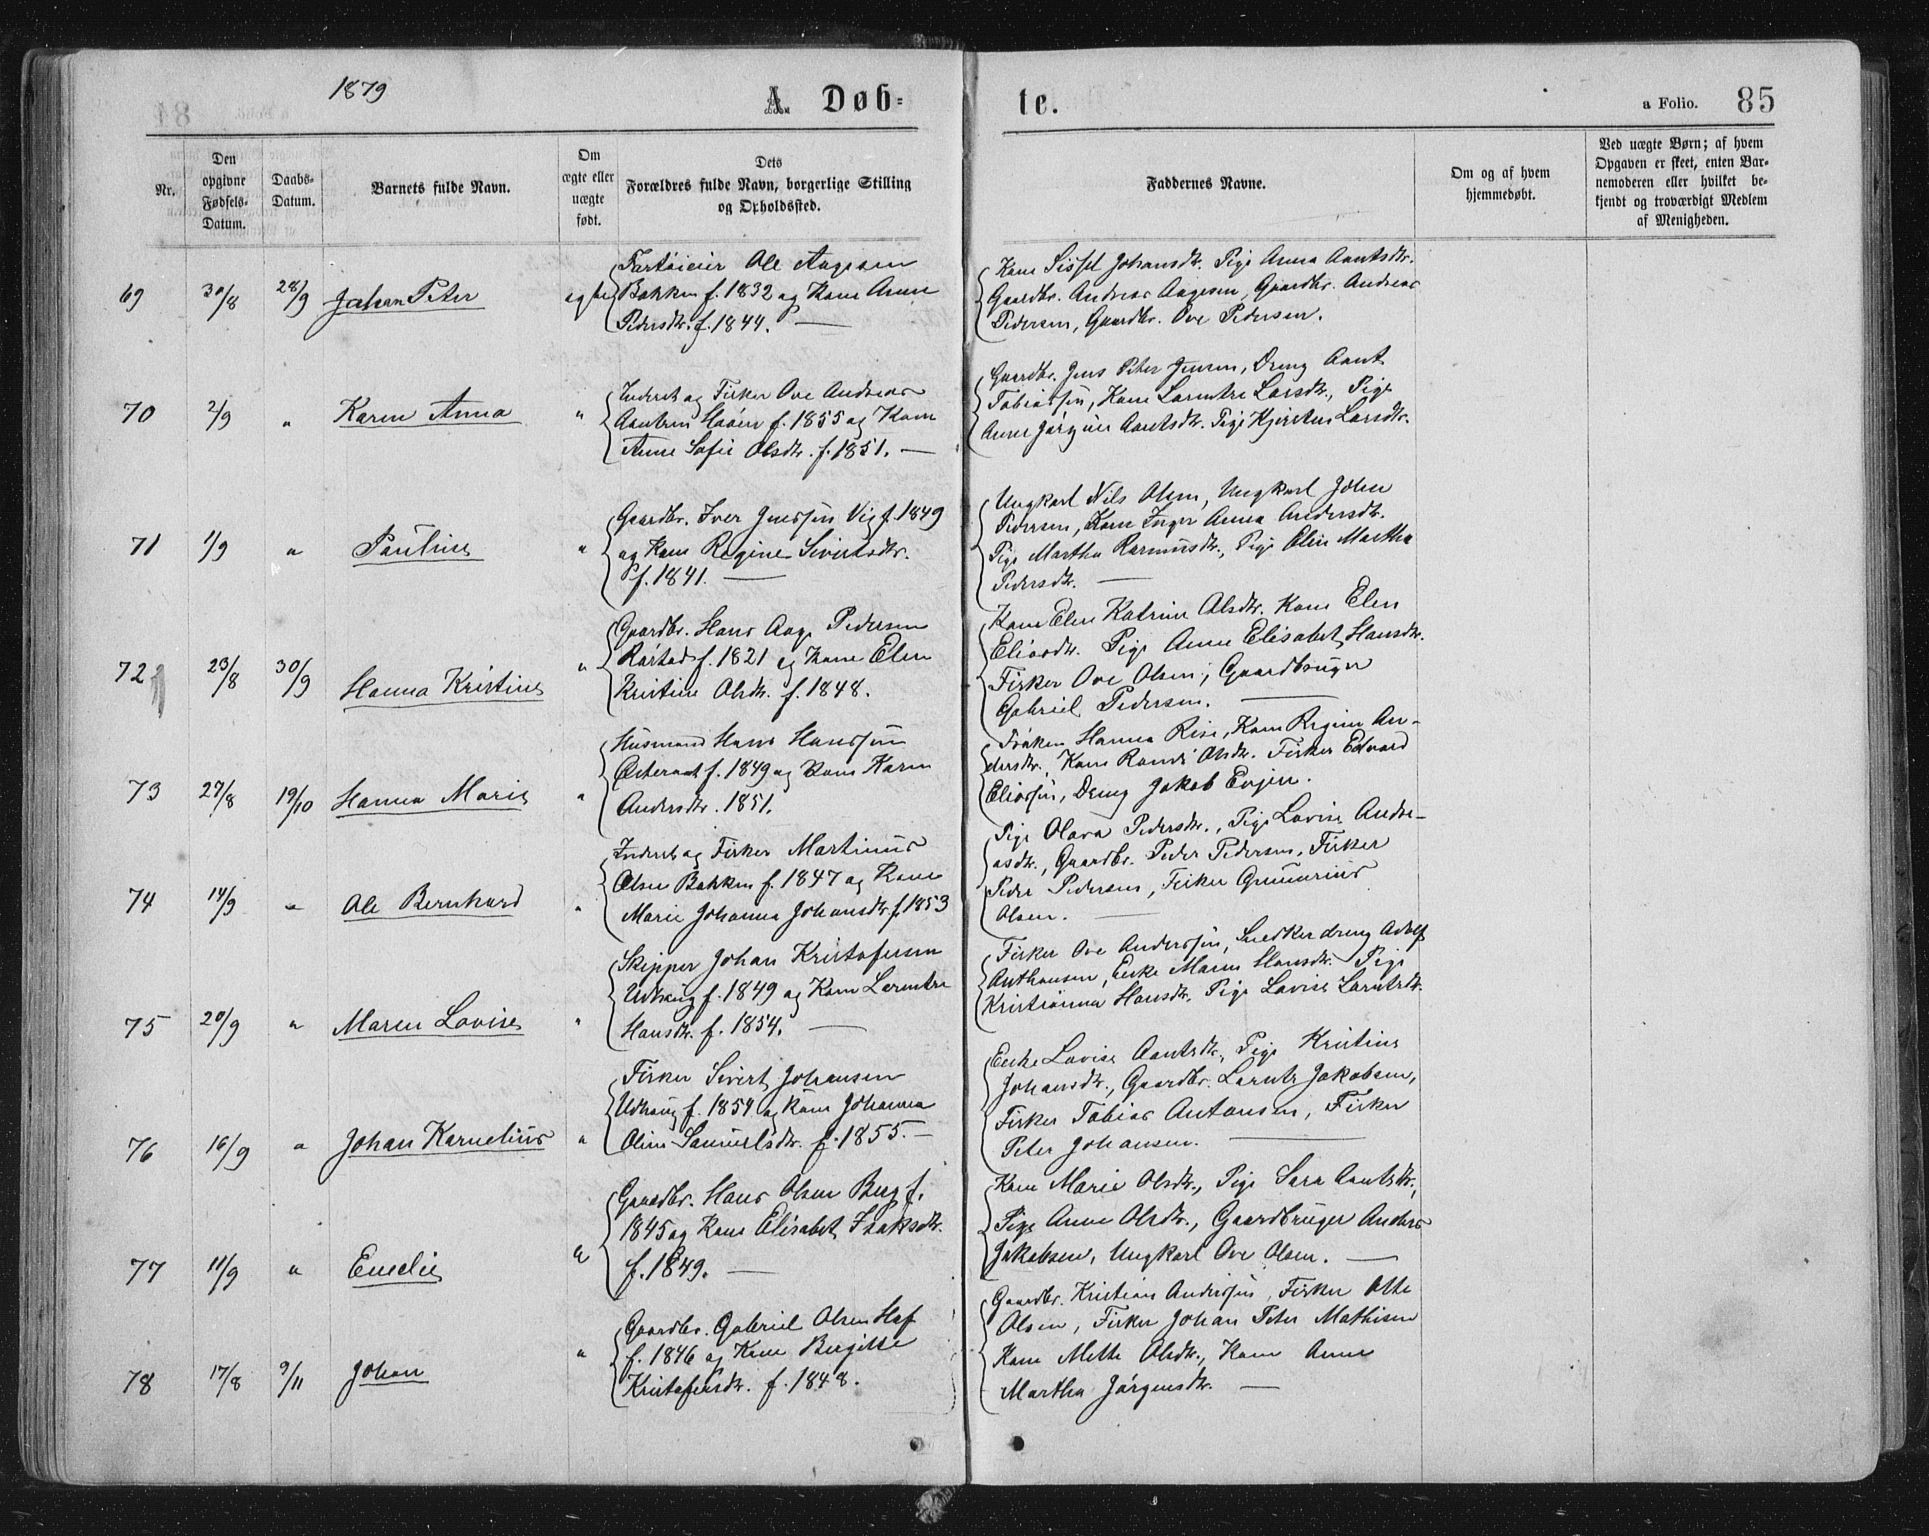 1879
A. Døb=
te.
a Folio. 85
Nr.
Den
opgivne
Fødsels-
Datum.
Daabs-
Datum.
Barnets fulde Navn.
Om
ægte eller
uægte
født.
Dets
Forældres fulde Navn, borgerlige Stilling
og Opholdssted.
Faddernes Navne.
Om og af hvem
hjemmedøbt.
Ved uægte Børn; af hvem
Opgaven er skeet, enten Bar-
nemoderen eller hvilket be-
kjendt og troværdigt Medlem
af Menigheden.
69 30/8 28/9 Johan Peter ægte
Fartøieier Ole Aagesen
Bakken f. 1832 og Kone Anne
Pedersdtr. f. 1844. —
Kone Sissel Johansdtr. Pige Anna Aantsdtr.
Gaardbr. Andreas Aagesen, Gaardbr. Andreas
Pedersen, Gaardbr. Ove Pedersen.
70 2/9 " Karen Anna "
Inderst og Fisker Ove Andreas
Aantsen f. 1855 og Kone
Anne Sofie Olsdtr. f. 1851. —
Gaardbr. Jens Peter Jensen, Dreng Aant
Tobiassen, Kone Larntse Larsdtr., Pige
Anne Jørgine Aantsdtr. Pige Kjerstine Larsdtr.
71 1/9 " Pauline "
Gaardbr. Iver Jenssen Vig f. 1849
og Kone Regine Sivertsdtr.
f. 1841. —
Ungkarl Nils Olsen, Ungkarl Johan
Pedersen, Kone Inger Anna Andersdtr.
Pige Martha Rasmusdtr., Pige Elen Martha
Pedersdtr. —
72 23/8 30/9 Hanna Kristine "
Gaardbr. Hans Aage Pedersen
Røstad f. 1821 og Kone Elen
Kristine Olsdtr. f. 1848.
Kone Elen Katrine Olsdtr. Kone Elen
Eliasdtr. Pige Anne Elisabet Hansdtr.
Fisker Ove Olsen, Gaardbruger
Gabriel Pedersen. —
73 27/8 19/10 Hanna Marie "
Husmand Hans Hanssen
f. 1849 og Kone Karen
Andersdtr. 1851.
Frøken Hanna Rise, Kone Regine An-
dersdtr., Kone Randi Olsdtr. Fisker Edvard
Eliassen, Dreng Jakob Evjen.
74 14/9 " Ole Bernhard "
Inderst og Fisker Martinus
Olsen Bakken f. 1847 og Kone
Marie Johanna Johansdtr. f. 1853
Pige Olava Pedersdtr., Pige Lovise Andre-
asdtr., Gaardbr. Peder Pedersen, Fisker
Peder Pedersen, Fisker Gunnerius
Olsen. —
75 20/9 " Maren Lovise "
Skipper Johan Kristofersen
Udhaug f. 1849 og Kone Lerntse
Hansdtr. f. 1854. —
Fisker Ove Anderssen, Snedkerdreng Adolf
Anthonsen, Enke Maren Hansdtr. Pige
Kristianna Hansdtr. Pige Lovise Larntsdtr.
76 16/9 " Johan Kornelius "
Fisker Sivert Johansen
Udhaug f. 1854 og Kone Johanna
Oline Samuelsdtr. f. 1855. —
Enke Lovise Aantsdtr., Pige Kristine
Johansdtr., Gaardbr. Larnts Jakobsen,
Fisker Tobias Antonsen, Fisker
Peter Johansen. —
77 11/9 " Emelie "
Gaardbr. Hans Olsen Berg f.
1845 og Kone Elisabet Isaksdtr.
f. 1849. —
Kone Marie Olsdtr., Pige Sara Aantsdtr.,
Pige Anne Olsdtr., Gaardbruger Anders
Jakobsen, Ungkarl Ove Olsen. —
78 17/8 9/11 Johan "
Gaardbr. Gabriel Olsen Hof
f. 1846 og Kone Bergitte
Kristofersdtr. f. 1848.
Gaardbr. Kristian Anderssen, Fisker Otte
Olsen, Fisker Johan Peter Mathisen
Kone Mette Olsdtr., Kone Anne
Martha Jørgensdtr. —